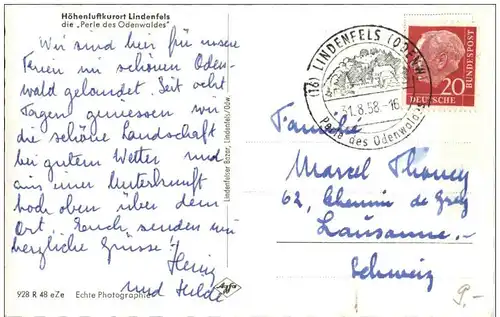 Höhenluftkurort Lindenfels
die „Perle des Odenwaldes"
Wir sind hier für unsere
Ferien im schönen Oden-
wald gelandet. Seit acht
Tagen geniessen wir
die schöne Landschaft
bei gutem Wetter und
aus einer Unterkunft
hoch oben über dem
Ort. Euch senden wir
herzliche Grüsse!
Heinz
und Hilde
928 R 48 eZe Echte Photographie
Agfa
Lindenfelser Bazar, Lindenfels/Odw.
(16) LINDENFELS (ODENW)
31.8.58-16
Perle des Odenwaldes
DEUTSCHE BUNDESPOST
20
Familie
Marcel Thoney
62, Chemin de
Lausanne.-
Schweiz
9.-